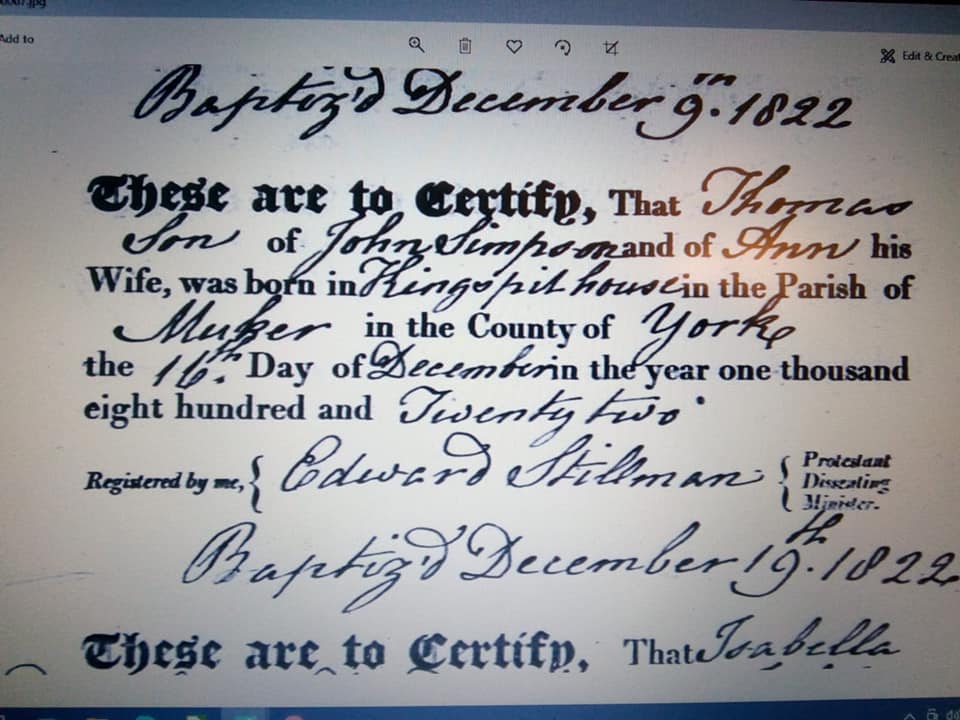 Add to
Edit & Creat
Baptiz'd December 9.th 1822
These are to Certify, That Thomas
Son of John Simpson and of Ann his
Wife, was born in Kingspit house in the Parish of
Muker in the County of York
the 16.th Day of December in the year one thousand
eight hundred and Twenty two
Registered by me, { Edward Stillman { Protestant
Dissenting
Minister.
Baptiz'd December 19.th 1822
These are to Certify, That Isabella